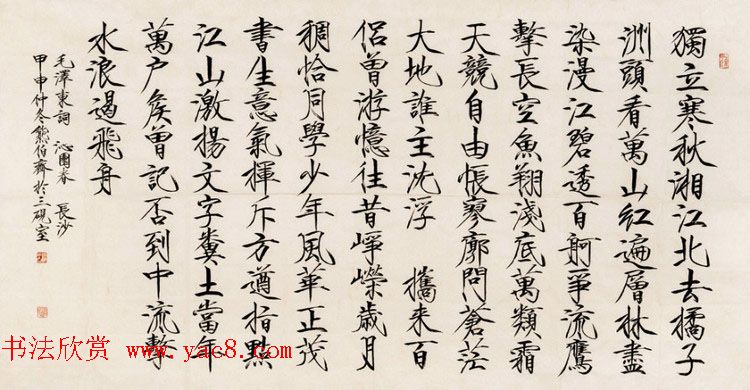 獨立寒秋湘江北去橘子
洲頭看萬山紅遍層林盡
染漫江碧透百舸爭流鷹
擊長空魚翔淺底萬類霜
天競自由悵寥廓問蒼茫
大地誰主沈浮 攜來百
侶曾游憶往昔崢嶸歲月
稠恰同學少年風華正茂
書生意氣揮斥方遒指點
江山激揚文字糞土當年
萬户矦曾記否到中流擊
水浪遏飛舟
毛澤東詞 沁園春 長沙
甲申仲冬熊伯齊於三硯室
书法欣赏 www.yac8.com